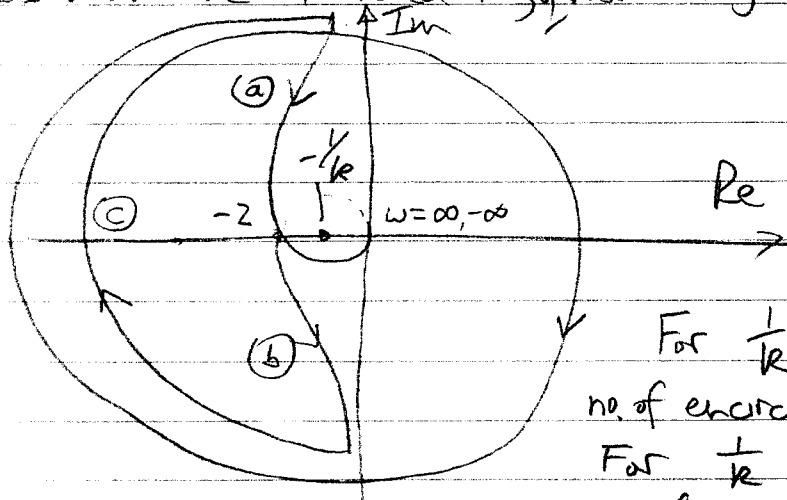 Im
ⓐ
-1/k
Re
ⓒ
-2
ω=∞,-∞
For 1/k
ⓑ
no. of encirc
For 1/k